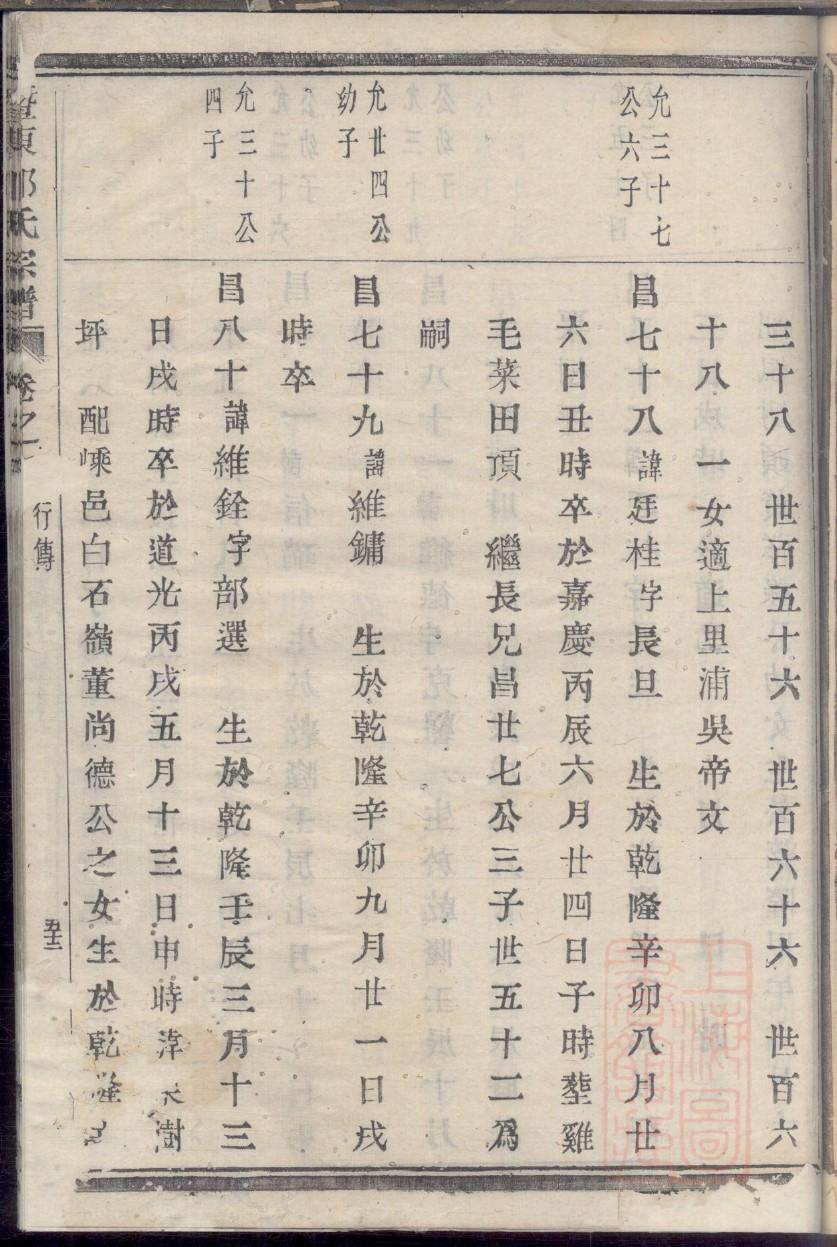 三十八　世百五十六　世百六十六　世百六
十八　一女適上里浦吳帝文
允三十七
公六子
昌七十八諱廷桂字長旦　生於乾隆辛卯八月廿
六日丑時卒於嘉慶丙辰六月廿四日子時塟雞
毛菜田頂　繼長兄昌廿七公三子世五十二爲
嗣
允廿四公
幼子
昌七十九諱維鏞　生於乾隆辛卯九月廿一日戌
時卒
允三十公
四子
昌八十諱維銓字部選　生於乾隆壬辰三月十三
日戌時卒於道光丙戌五月十三日申時　樹
坪　配嵊邑白石嶺董尚德公之女生於乾隆
東　氏宗譜　卷之一　行傳　五十三
上海圖書館藏